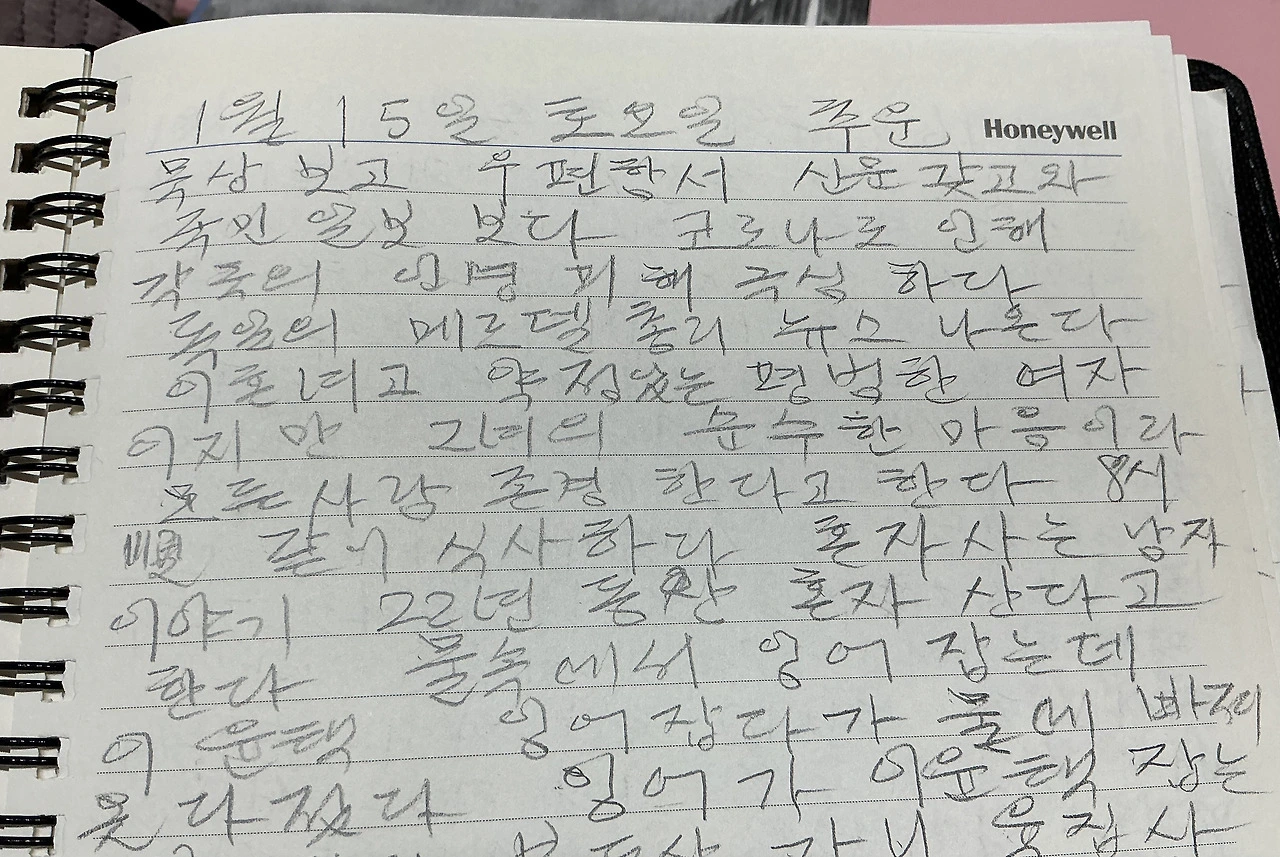 1월 15일 토요일 추운
Honeywell
묵상 보고 우편함서 신문 갖고와
국민일보 보다 코로나로 인해
각국의 인명 피해 극심 하다
독일의 메르켈 총리 뉴스 나온다
이혼녀고 약점있는 평범한 여자
이지만 그녀의 순수한 마음이라
모든사람 존경 한다고 한다 8시
順 같이 식사하다 혼자사는 남자
이야기 22년 동안 혼자 산다고
한다 물속에서 잉어 잡는데
이윤택 잉어잡다가 물에 빠져
옷 다 젔다 잉어가 이윤택 잡는